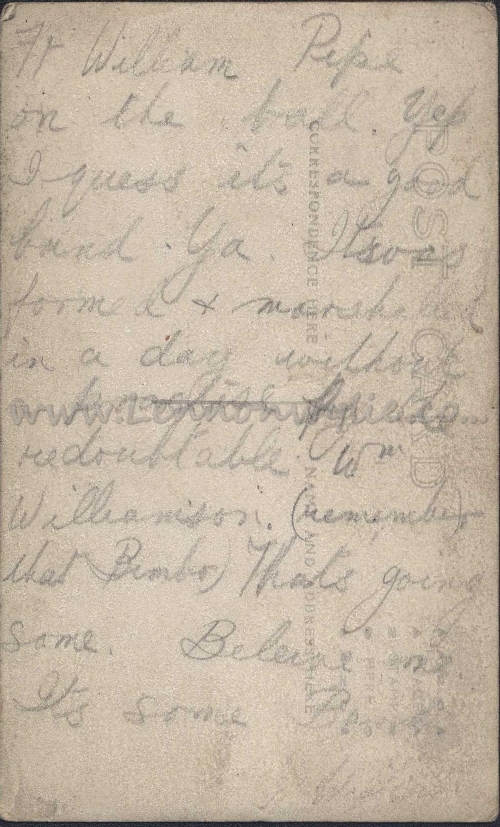 Ft William Pipe
on the ball. Yep
I guess it's a good
band. Ya. It was
formed & marshalled
in a day without
by the
redoubtable Wm
Williamson. (remember
that Bimbo) That's going
some. Beleive me.
It's some Band.
POST CARD
CORRESPONDENCE HERE
NAME AND ADDRESS HERE